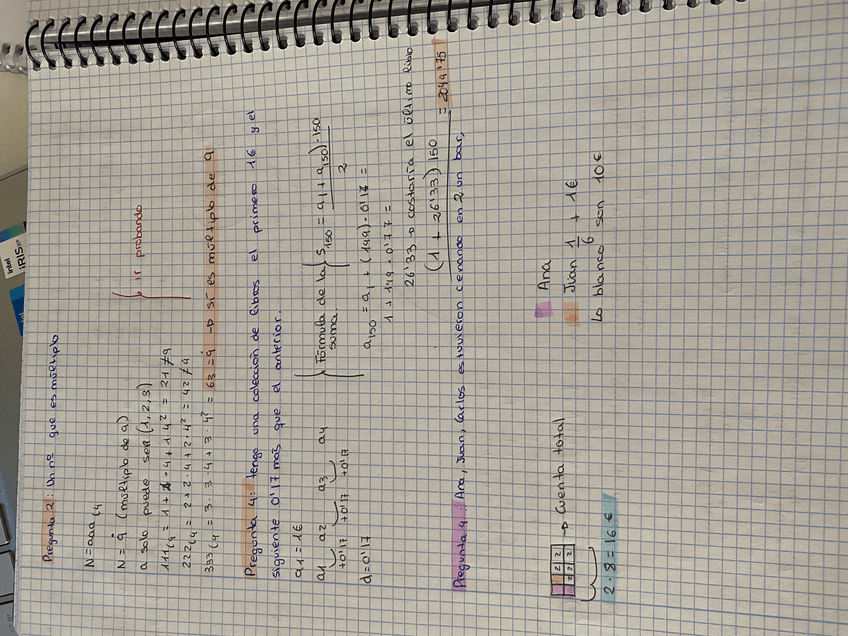 Pregunta 2: Un nº que es múltiplo
N=aaa(4
N = 9̇ (múltiplo de 9)
a solo puede ser (1, 2, 3)
111(4 = 1 + 1·4 + 1·4² = 21 ≠ 9̇
222(4 = 2 + 2·4 + 2·4² = 42 ≠ 9̇
333(4 = 3 · 3·4 + 3·4² = 63 = 9̇ → sí es múltiplo de 9
Ir probando
Pregunta 4: tengo una colección de libros el primero 1€ y el
siguiente 0'17 más que el anterior.
a1 = 1€
a1 a2 a3 a4
+0'17 +0'17 +0'17
d=0'17
Fórmula de la suma. S150 = (a1 + a150)·150 / 2
a150 = a1 + (149)·0'17 =
1 + 149·0'17 =
26'33 → costaría el último libro
(1 + 26'33) 150 / 2 = 2049'75
Pregunta 4: Ana, Juan, Carlos estuvieron cenando en un bar,
→ Cuenta total
2 2
2 2 2
2·8=16€
Ana
Juan 1/6 + 1€
Lo blanco son 10€
intel
iRIS